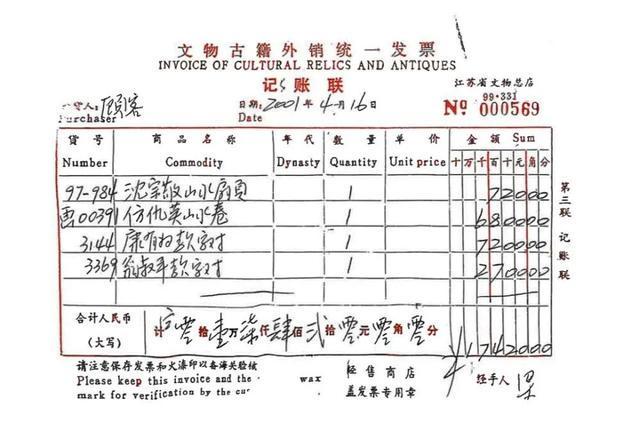 文物古籍外销统一发票
INVOICE OF CULTURAL RELICS AND ANTIQUES
记账联
江苏省文物总店
购货人: 顾客
日期: 2001年4月16日
99·331
Purchaser
Date
No 000569
货号 商品名称 年代 数量 单价 金额 Sum
Number Commodity Dynasty Quantity Unit price 十万千百十元角分
97-984 沈宗敬山水扇页 1 72000
画00391 仿仇英山水卷 1 680000
3144 康有为款字对 1 720000
3369 翁叔平款字对 1 270000
合计人民币 计 零拾壹万柒仟肆佰贰拾零元零角零分
(大写) ¥1742000
请注意保存发票和火漆印以备海关验核 经售商店 经手人 梁
Please keep this invoice and the wax 盖发票专用章
mark for verification by the cu
第三联 记账联